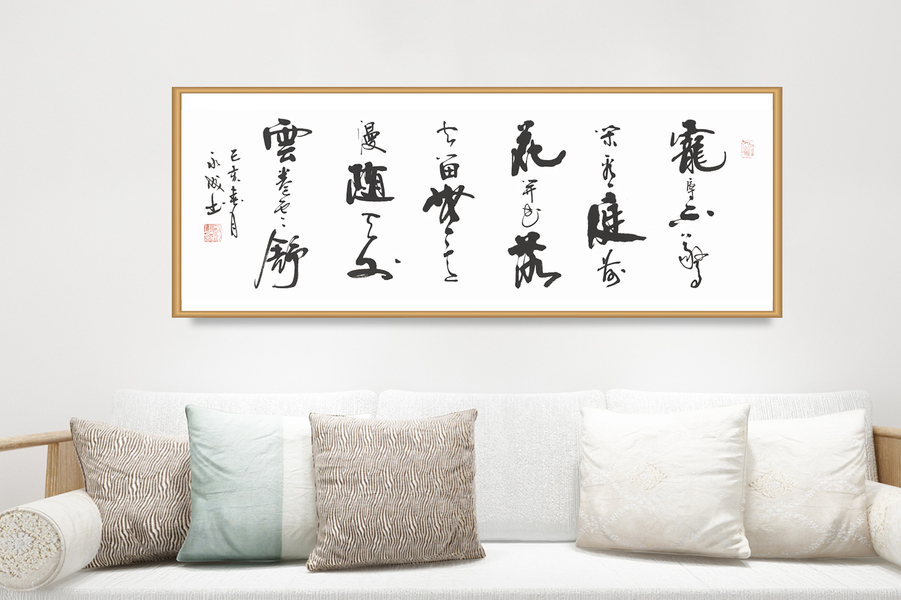 寵辱不驚
閑看庭前
花開花落
去留無意
漫隨天外
雲卷雲舒
己亥春月
永成书